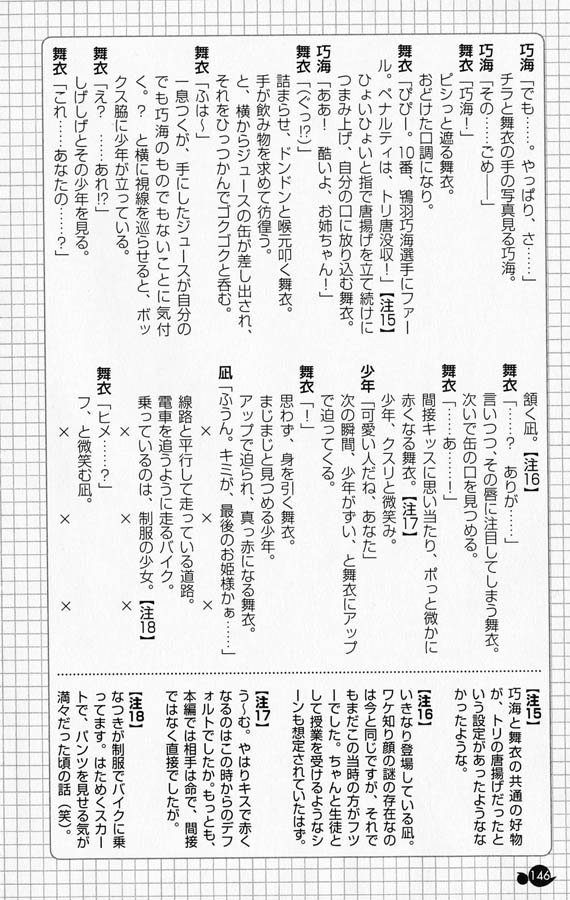 巧海「でも……。やっぱり、さ……」
チラと舞衣の手の写真見る巧海。
巧海「その……ごめ――」
舞衣「巧海！」
ピシっと遮る舞衣。
おどけた口調になり。
舞衣「ぴぴー。10番、鴇羽巧海選手にファー
ル。ペナルティは、トリ唐没収！」【注15】
ひょいひょいと指で唐揚げを立て続けに
つまみ上げ、自分の口に放り込む舞衣。
巧海「ああ！　酷いよ、お姉ちゃん！」
舞衣「（ぐっ!?）」
詰まらせ、ドンドンと喉元叩く舞衣。
手が飲み物を求めて彷徨う。
と、横からジュースの缶が差し出され、
それをひっつかんでゴクゴクと呑む。
舞衣「ふは～」
一息つくが、手にしたジュースが自分の
でも巧海のものでもないことに気付
く。？　と横に視線を巡らせると、ボッ
クス脇に少年が立っている。
舞衣「え？　……あれ!?」
しげしげとその少年を見る。
舞衣「これ……あなたの……？」
頷く凪。【注16】
舞衣「……？　ありが……」
言いつつ、その唇に注目してしまう舞衣。
次いで缶の口を見つめる。
舞衣「……あ……！」
間接キッスに思い当たり、ポっと微かに
赤くなる舞衣。【注17】
少年、クスリと微笑み。
少年「可愛い人だね、あなた」
次の瞬間、少年がずい、と舞衣にアップ
で迫ってくる。
舞衣「！」
思わず、身を引く舞衣。
まじまじと見つめる少年。
アップで迫られ、真っ赤になる舞衣。
凪「ふうん。キミが、最後のお姫様かぁ……」
×　×　×
線路と平行して走っている道路。
電車を追うように走るバイク。
乗っているのは、制服の少女。【注18】
×　×　×
舞衣「ヒメ……？」
フ、と微笑む凪。
×　×　×
【注15】
巧海と舞衣の共通の好物
が、トリの唐揚げだったと
いう設定があったようなな
かったような。
【注16】
いきなり登場している凪。
ワケ知り顔の謎の存在なの
は今と同じですが、それで
もまだこの当時の方がフツ
ーでした。ちゃんと生徒と
して授業を受けるようなシ
ーンも想定されていたはず。
【注17】
う～む。やはりキスで赤く
なるのはこの時からのデフ
ォルトでしたか。もっとも、
本編では相手は命で、間接
ではなく直接でしたが。
【注18】
なつきが制服でバイクに乗
ってます。はためくスカー
トで、パンツを見せる気が
満々だった頃の話（笑）。
146